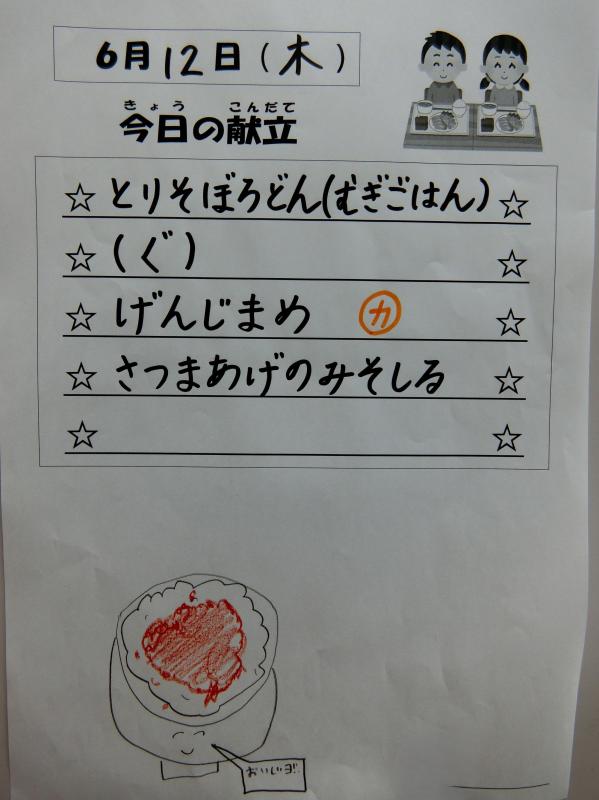 6月12日(木)
きょう こんだて
今日の献立
☆ とりそぼろどん(むぎごはん) ☆
☆ (ぐ) ☆
☆ げんじまめ カ ☆
☆ さつまあげのみそしる ☆
☆ ☆
おいしいヨ!!